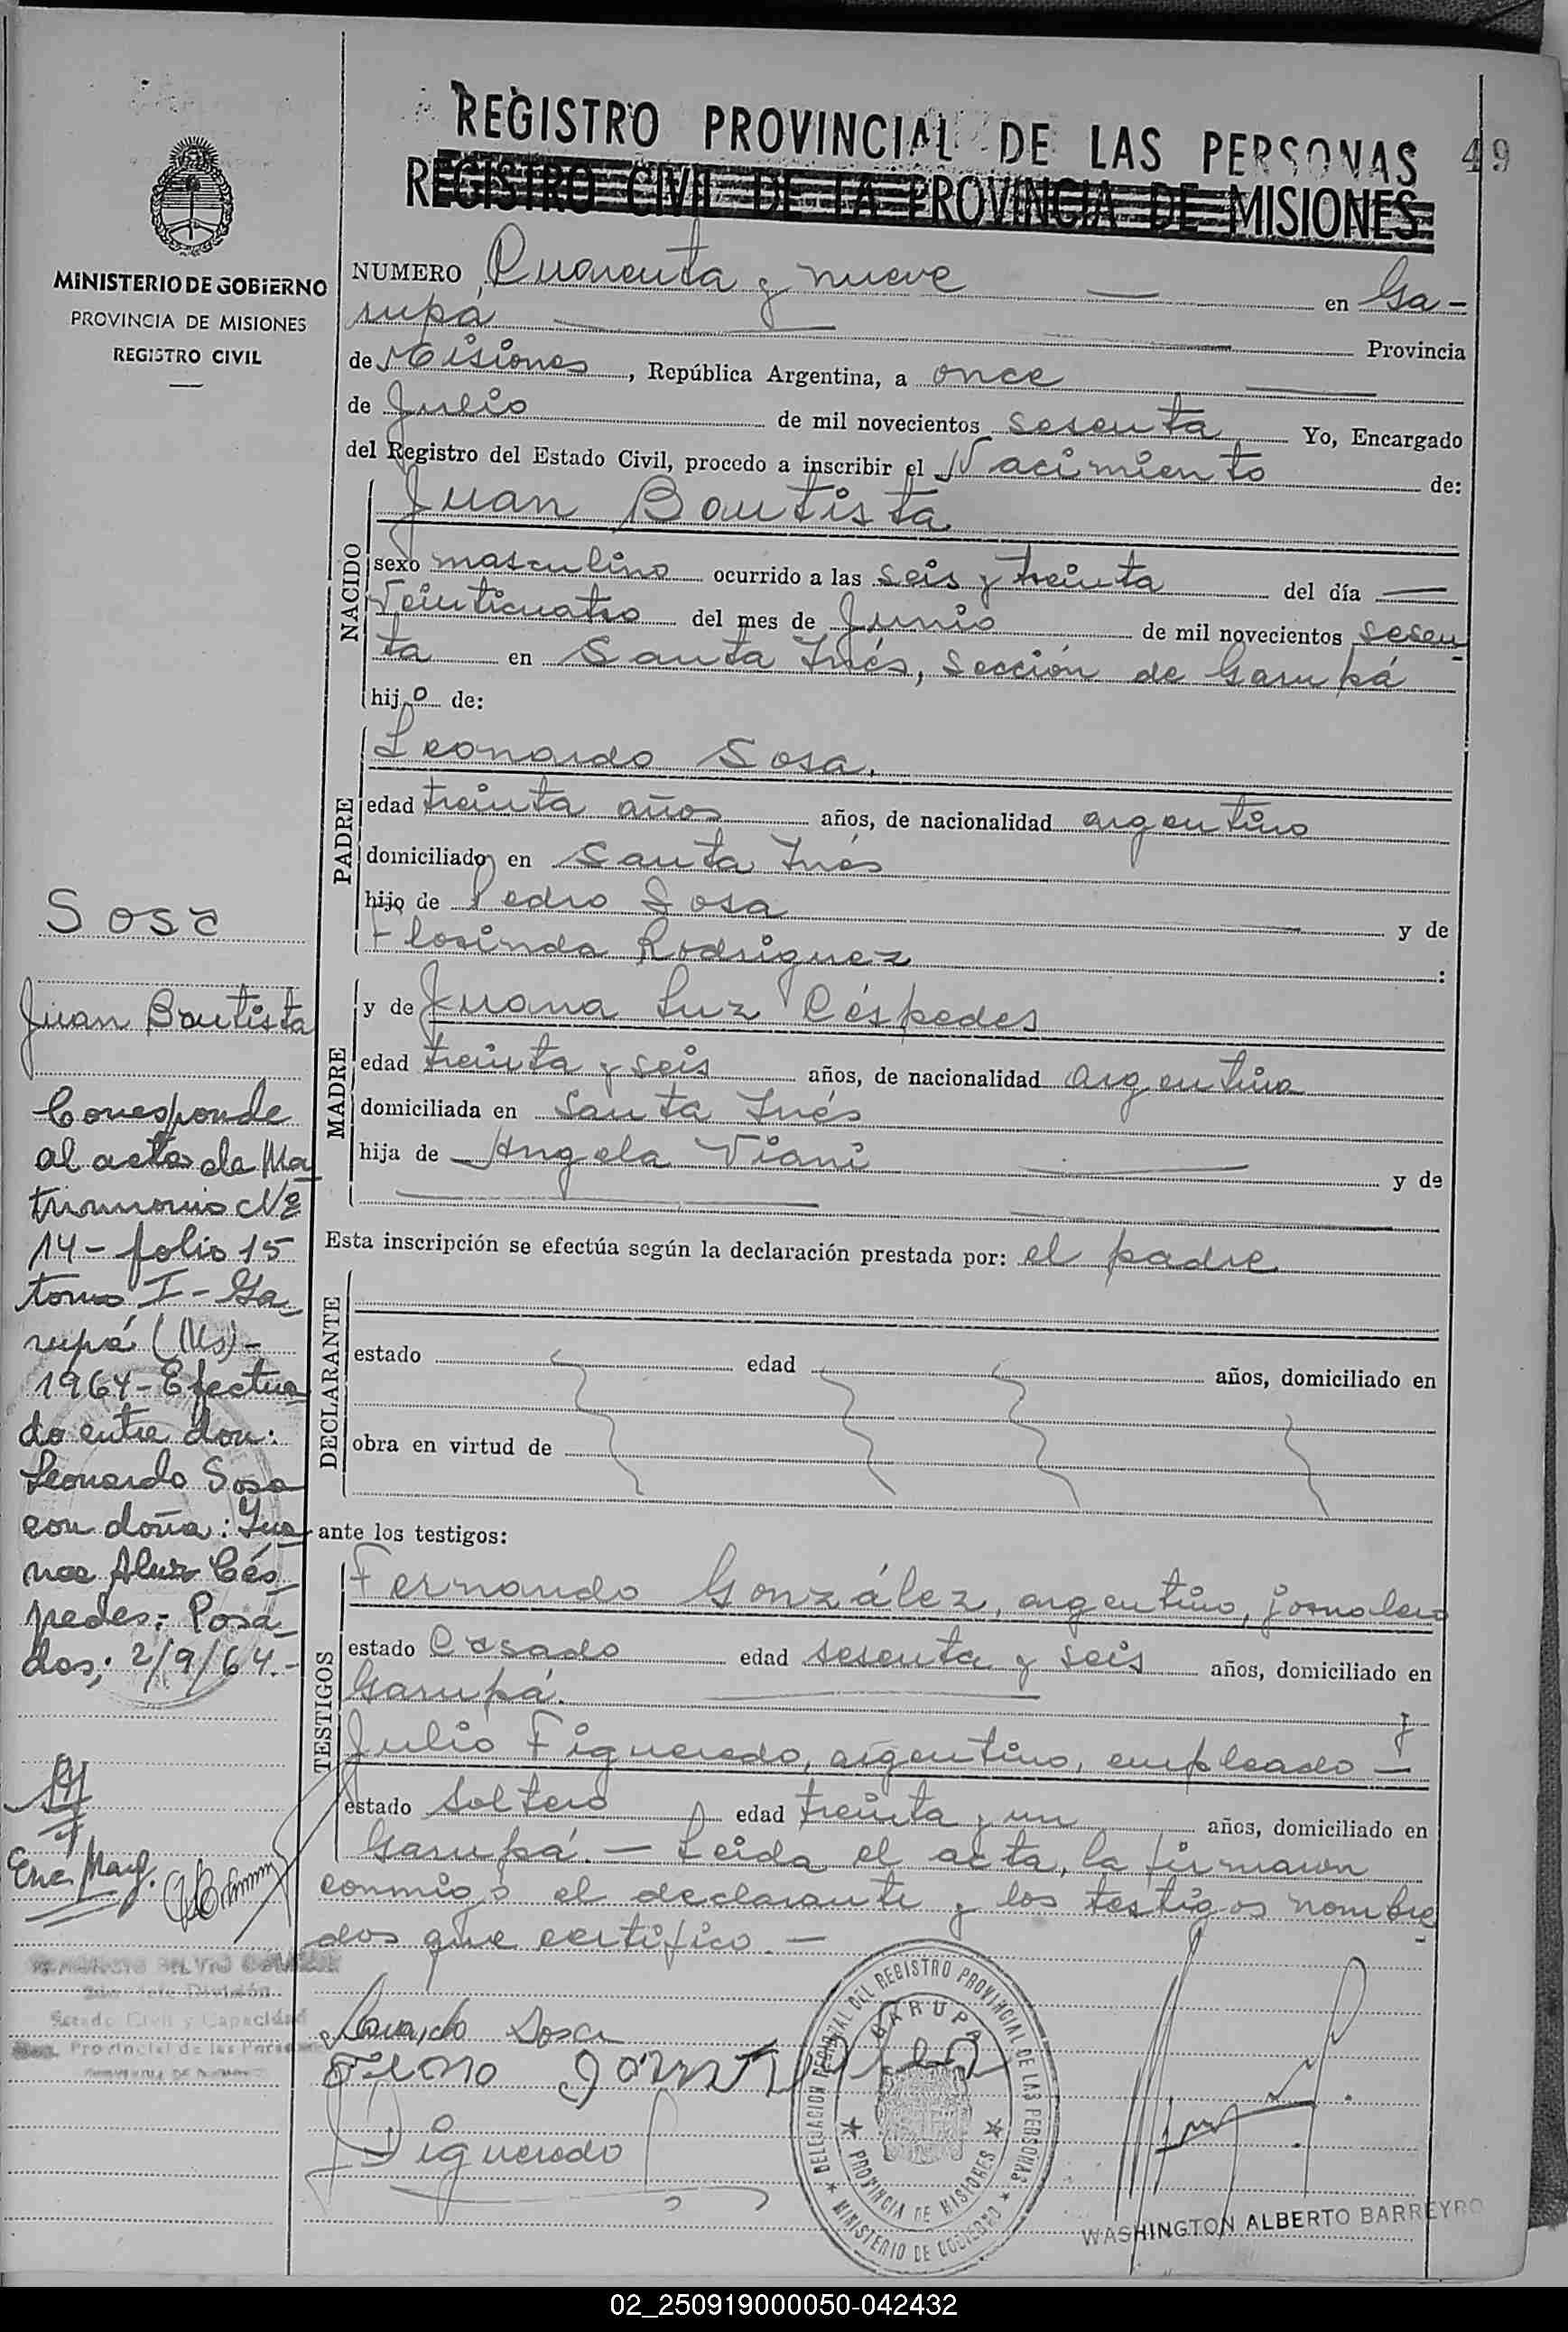 REGISTRO PROVINCIAL DE LAS PERSONAS 49
REGISTRO CIVIL DE LA PROVINCIA DE MISIONES
MINISTERIO DE GOBIERNO
PROVINCIA DE MISIONES
REGISTRO CIVIL
NUMERO Cuarenta y nueve en Ga-
rupá Provincia
de Misiones, República Argentina, a once
de Julio de mil novecientos sesenta Yo, Encargado
del Registro del Estado Civil, procedo a inscribir el Nacimiento de:
Juan Bautista
NACIDO
sexo masculino ocurrido a las seis y treinta del día
veinticuatro del mes de Junio de mil novecientos sesen-
ta en Santa Inés, Sección de Garupá
hijo de:
PADRE
Leonardo Sosa.
edad treinta años años, de nacionalidad argentino
domiciliado en Santa Inés
hijo de Pedro Sosa y de
Flosinda Rodriguez :
MADRE
y de Juana Luz Céspedes
edad treinta y seis años, de nacionalidad argentina
domiciliada en Santa Inés
hija de Angela Viani y de
Esta inscripción se efectúa según la declaración prestada por: el padre
DECLARANTE
estado edad años, domiciliado en
obra en virtud de
ante los testigos:
TESTIGOS
Fernando González, argentino, jornalero
estado Casado edad sesenta y seis años, domiciliado en
Garupá. y
Julio Figueredo, argentino, empleado -
estado soltero edad treinta y un años, domiciliado en
Garupá. - Leida el acta, la firmaron
conmigo el declarante y los testigos nombra-
dos que certifico. -
Sosa
Juan Bautista
Corresponde
al acta de Ma-
trimonio Nº
14 - folio 15
tomo I - Ga-
rupá (Ms) -
1964 - Efectua-
do entre don:
Leonardo Sosa
con doña: Jua-
na Luz Cés-
pedes: - Posa-
das; 2/9/64.-
Enc. Marg.
Estado Civil y Capacidad
Reg. Provincial de las Personas
Leonardo Sosa
Figueredo
DELEGACION REGIONAL DEL REGISTRO PROVINCIAL DE LAS PERSONAS
MINISTERIO DE GOBIERNO
GARUPA
PROVINCIA DE MISIONES
WASHINGTON ALBERTO BARREYRO
02_250919000050-042432